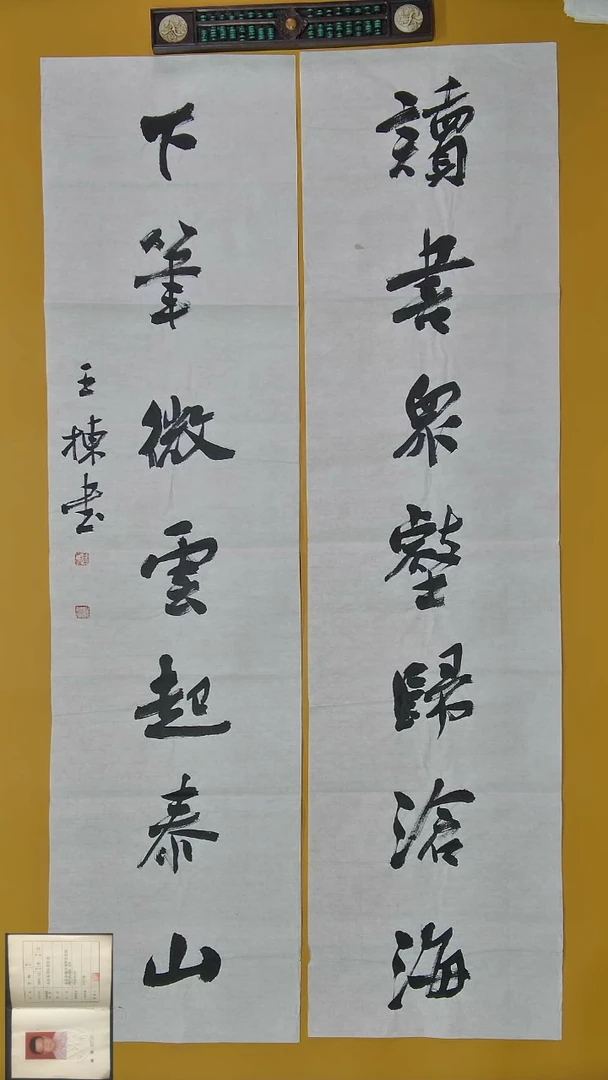 讀書眾壑歸滄海
下筆微雲起泰山
王棟书